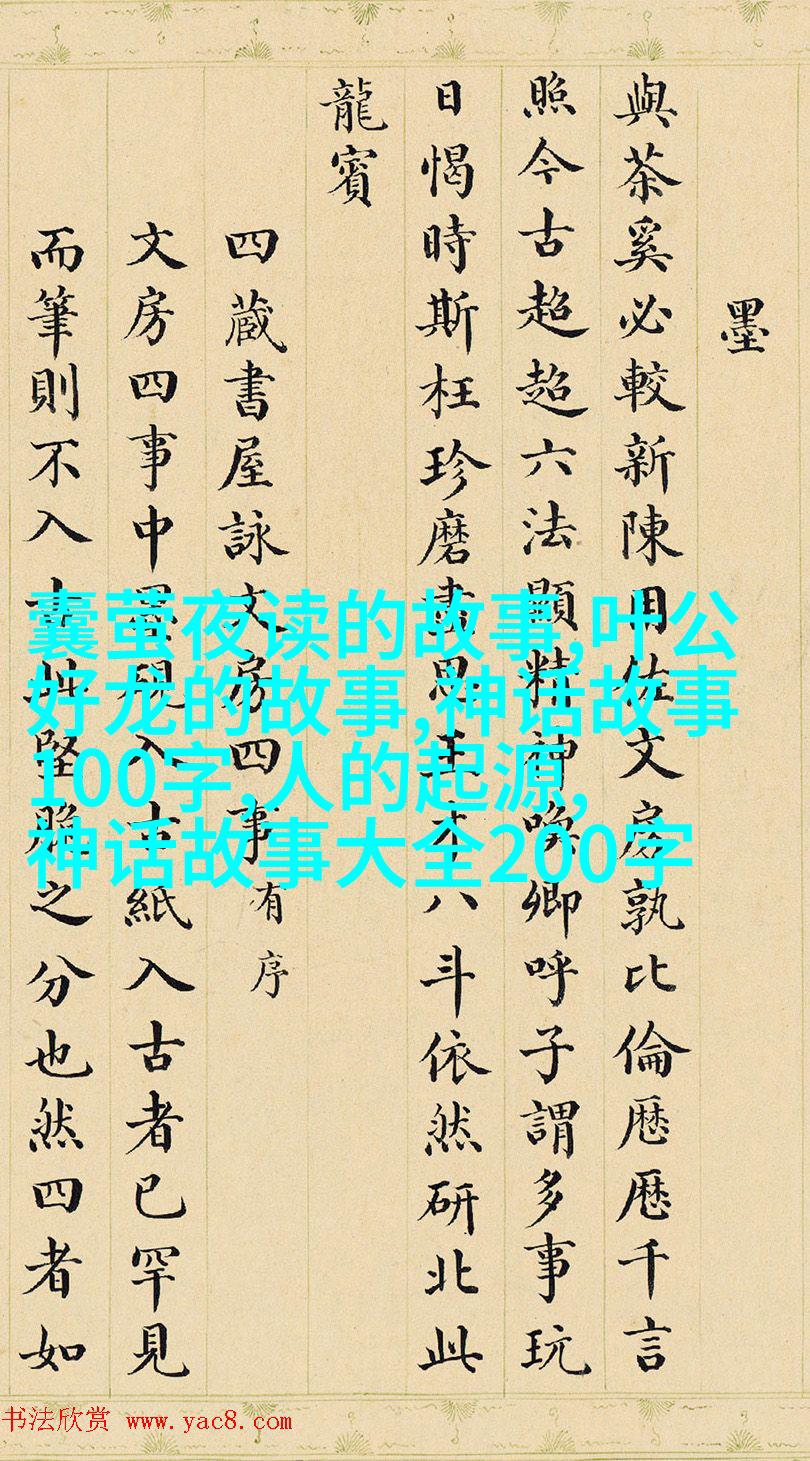 墨
與茶奚必較新陳用佐文房孰比倫厯厯千言
照今古超超六法顯精神喚卿呼子謂多事玩
日愒時斯枉珍磨盡思王才八斗依然研北此
龍賓
四蔵書屋詠文房四事有序
文房四事中墨硯入土紙入古者已罕見
而筆則不入此堅脆之分也然四者如
囊萤夜读的故事,叶公
好龙的故事,神话故事
100字,人的起源,
神话故事大全200字
书法欣赏 www.yac8.com